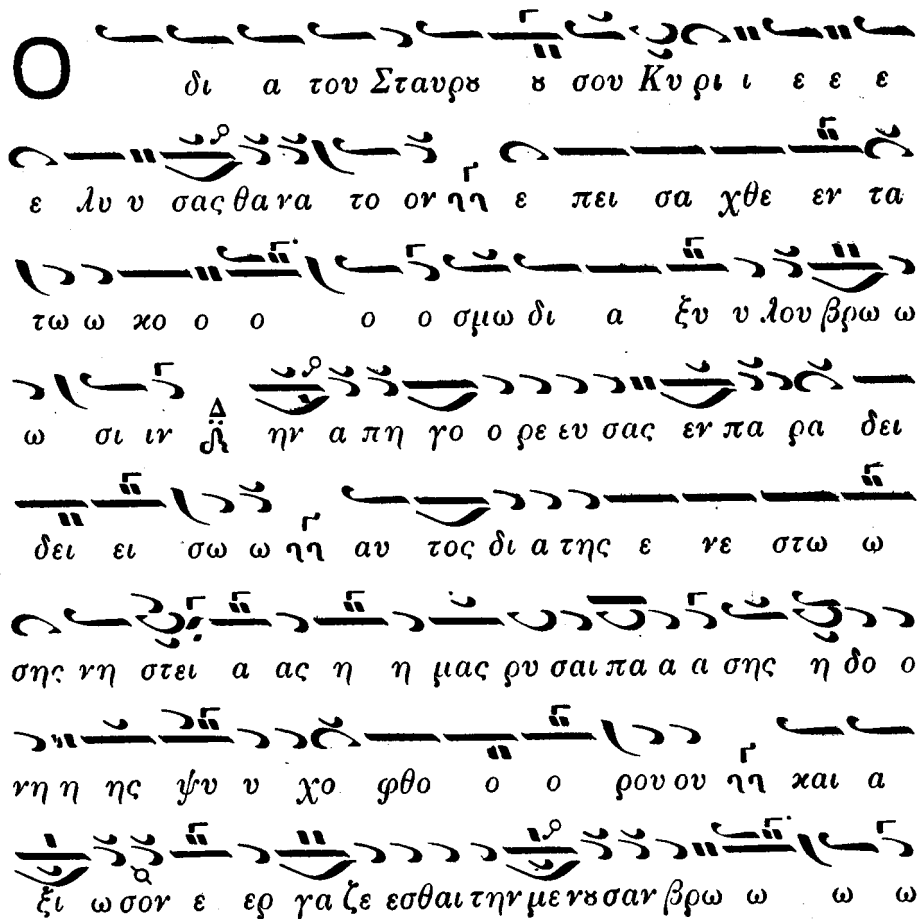 Ο δι α του Σταυρȣ ȣ σου Κυ ρι ι ε ε ε
ε λυ υ σας θα να το ον ε πει σα χθε εν τα
τω ω κο ο ο ο ο σμω δι α ξυ υ λου βρω ω
ω σι ιν Δ ην α πη γο ο ρε ευ σας εν πα ρα δει
δει ει σω ω αυ τος δι α της ε νε στω ω
σης νη στει α ας η η μας ρυ σαι πα α α σης η δο ο
νη η ης ψυ υ χο φθο ο ο ρου ου και α
ξι ω σον ε ερ γα ζε εσθαι την με νȣ σαν βρω ω ω ω